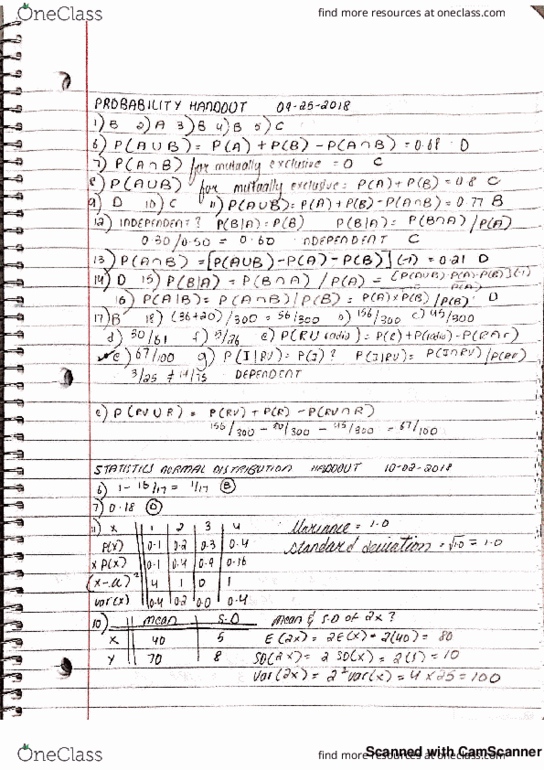 OneClass
find more resources at oneclass.com
PROBABILITY HANDOUT 09-25-2018
1) B 2) A 3) B 4) B 5) C
6) P(A∪B) = P(A) + P(B) - P(A∩B) = 0.68 D
7) P(A∩B) for mutually exclusive = 0 C
8) P(A∪B) for mutually exclusive: P(A) + P(B) = 0.8 C
9) D 10) C 11) P(A∪B) = P(A) + P(B) - P(A∩B) = 0.77 B
12) INDEPENDENT = ? P(B|A) = P(B) P(B|A) = P(B∩A)/P(A)
0.30/0.50 = 0.60 INDEPENDENT C
13) P(A∩B) = [P(A∪B) - P(A) - P(B)](-1) = 0.21 D
14) D 15) P(B|A) = P(B∩A) / P(A) = [P(A∪B) - P(A) - P(B)](-1) / P(A)
16) P(A|B) = P(A∩B) / P(B) = P(A) x P(B) / P(B) D
17) B 18) (36+20)/300 = 56/300 b) 156/300 c) 45/300
d) 30/61 f) 15/26 e) P(RV ∪ radio) = P(R) + P(radio) - P(R∩r)
e) 67/100 g) P(I|RV) = P(I) ? P(I|RV) = P(I∩RV)/P(RV)
3/25 ≠ 14/75 DEPENDENT
e) P(RV∪R) = P(RV) + P(R) - P(RV∩R)
156/300 - 90/300 - 45/300 = 67/100
STATISTICS NORMAL DISTRIBUTION HANDOUT 10-02-2018
6) 1 - 16/17 = 1/17 B
7) 0.18 D
X 1 2 3 4 Variance = 1.0
P(X) 0.1 0.2 0.3 0.4 standard deviation = √1.0 = 1.0
X P(X) 0.1 0.4 0.9 0.16
(X-u)² 4 1 0 1
Var(X) 0.4 0.2 0.0 0.4
10) mean S.D mean & S.D of 2X ?
X 40 5 E(2X) = 2E(X) = 2(40) = 80
Y 70 8 SD(2X) = 2 SD(X) = 2(5) = 10
Var(2X) = 2² Var(X) = 4 x 25 = 100
Scanned with CamScanner
OneClass
find more resources at oneclass.com